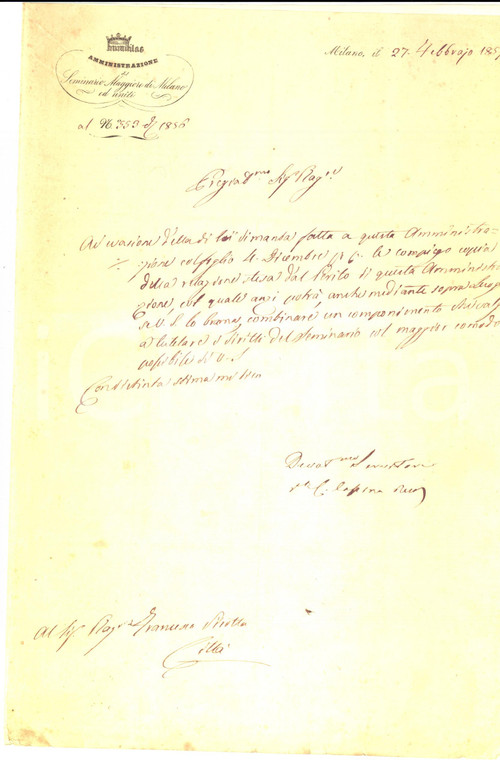 humilitas
AMMINISTRAZIONE
del
Seminario Maggiore di Milano
ed uniti
al N. 353 1856
Milano, il 27 Febbrajo 185
Pregiat.mo Sig. Rag.re
Ad evasione della di lei dimanda fatta a questa Amministra-
zione col foglio 4 Dicembre le compiego copia
della relazione stesa dal Perito di questa Amministra
zione, col quale anzi potrà anche mediante
combinare un componimento
a tutelare i diritti del Seminario col maggior comodo
possibile di
Con distinta stima
Devot.mo Servitore
Al Sig. Rag.re Francesco
Città